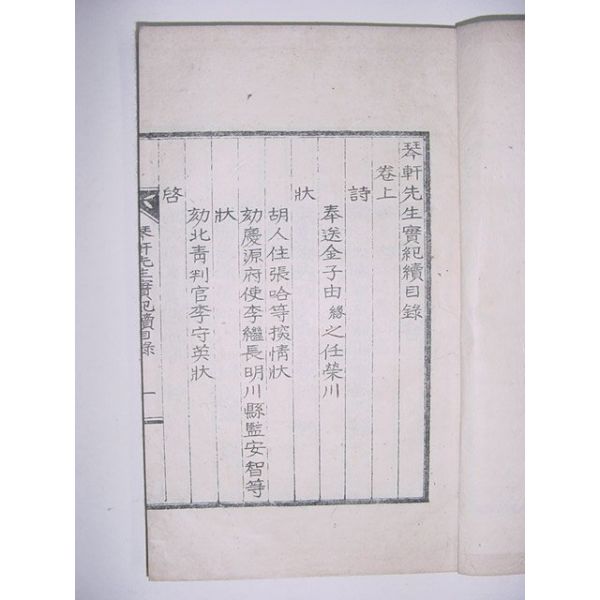 琴軒先生實紀續目錄
卷上
詩
奉送金子由緣之任榮川
狀
胡人住張哈等掞情狀
劾慶源府使李繼長明川縣監安智等
狀
劾北靑判官李守英狀
啓
琴軒先生實紀續目錄 一